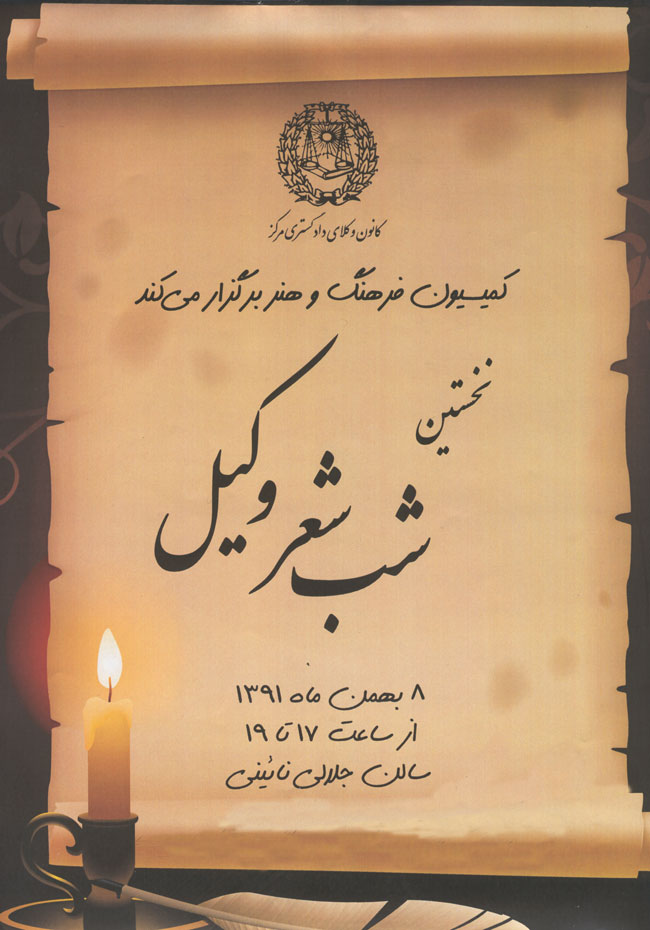 کانون وکلای دادگستری مرکز
کمیسیون فرهنگ و هنر برگزار می‌کند
نخستین
شب شعر وکیل
۸ بهمن ماه ۱۳۹۱
از ساعت ۱۷ تا ۱۹
سالن جلالی نائینی